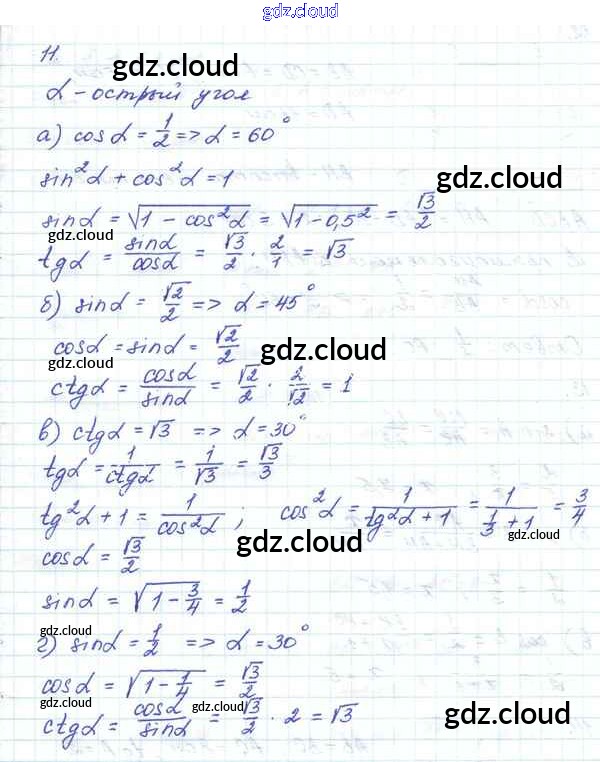 gdz.cloud
11.
gdz.cloud
α - острый угол
а) cos α = 1/2 => α = 60°
sin²α + cos²α = 1
gdz.cloud
sin α = √(1 - cos²α) = √(1 - 0,5²) = √3/2
gdz.cloud
tg α = sin α / cos α = √3/2 · 2/1 = √3
б) sin α = √2/2 => α = 45°
cos α = sin α = √2/2
gdz.cloud
ctg α = cos α / sin α = √2/2 · 2/√2 = 1
в) ctg α = √3 => α = 30°
tg α = 1/ctg α = 1/√3 = √3/3
tg²α + 1 = 1/cos²α ; cos²α = 1/(tg²α + 1) = 1/(1/3 + 1) = 3/4
cos α = √3/2
gdz.cloud
sin α = √(1 - 3/4) = 1/2
gdz.cloud
г) sin α = 1/2 => α = 30°
cos α = √(1 - 1/4) = √3/2
gdz.cloud
gdz.cloud
ctg α = cos α / sin α = √3/2 · 2 = √3
gdz.cloud